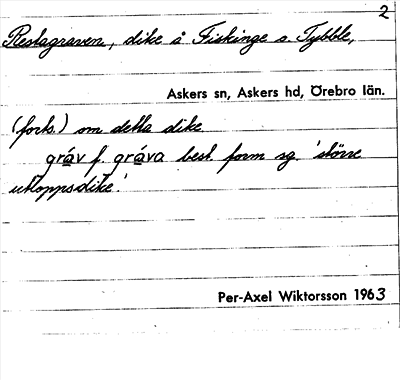 2
Restagraven, dike å Fiskinge o. Tybble,
Askers sn, Askers hd, Örebro län.
(forts.) om detta dike
gráv f. gráva best. form sg. 'större
utloppsdike'
Per-Axel Wiktorsson 1963